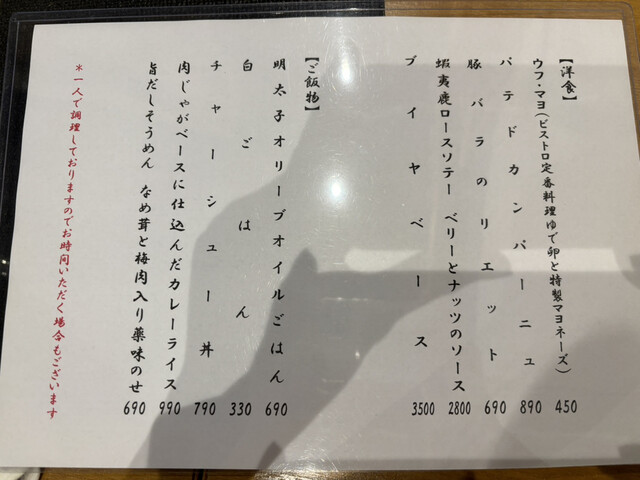 【洋食】
ウフ・マヨ(ビストロ定番料理ゆで卵と特製マヨネーズ) 450
パテドカンパーニュ 890
豚バラのリエット 690
蝦夷鹿ロースソテー ベリーとナッツのソース 2800
ブイヤベース 3500
【ご飯物】
明太子オリーブオイルごはん 690
白ごはん 330
チャーシュー丼 790
肉じゃがベースに仕込んだカレーライス 990
旨だしそうめん なめ茸と梅肉入り薬味のせ 690
*一人で調理しておりますのでお時間いただく場合もございます